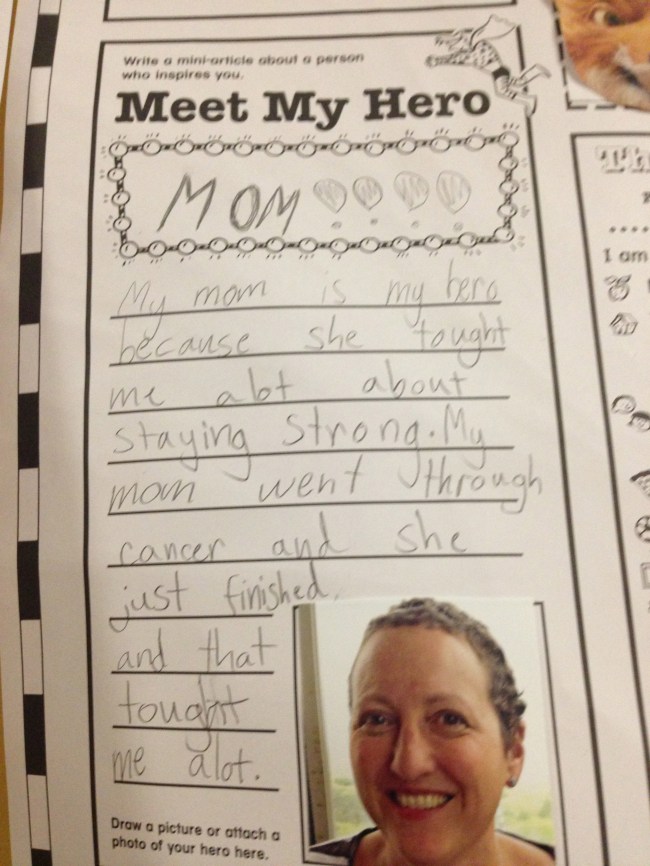 Write a mini-article about a person
who inspires you.
Meet My Hero
MOM!!!!
My mom is my hero
because she tought
me alot about
staying strong. My
mom went through
cancer and she
just finished.
and that
tought
me alot.
Draw a picture or attach a
photo of your hero here.
Th
I am